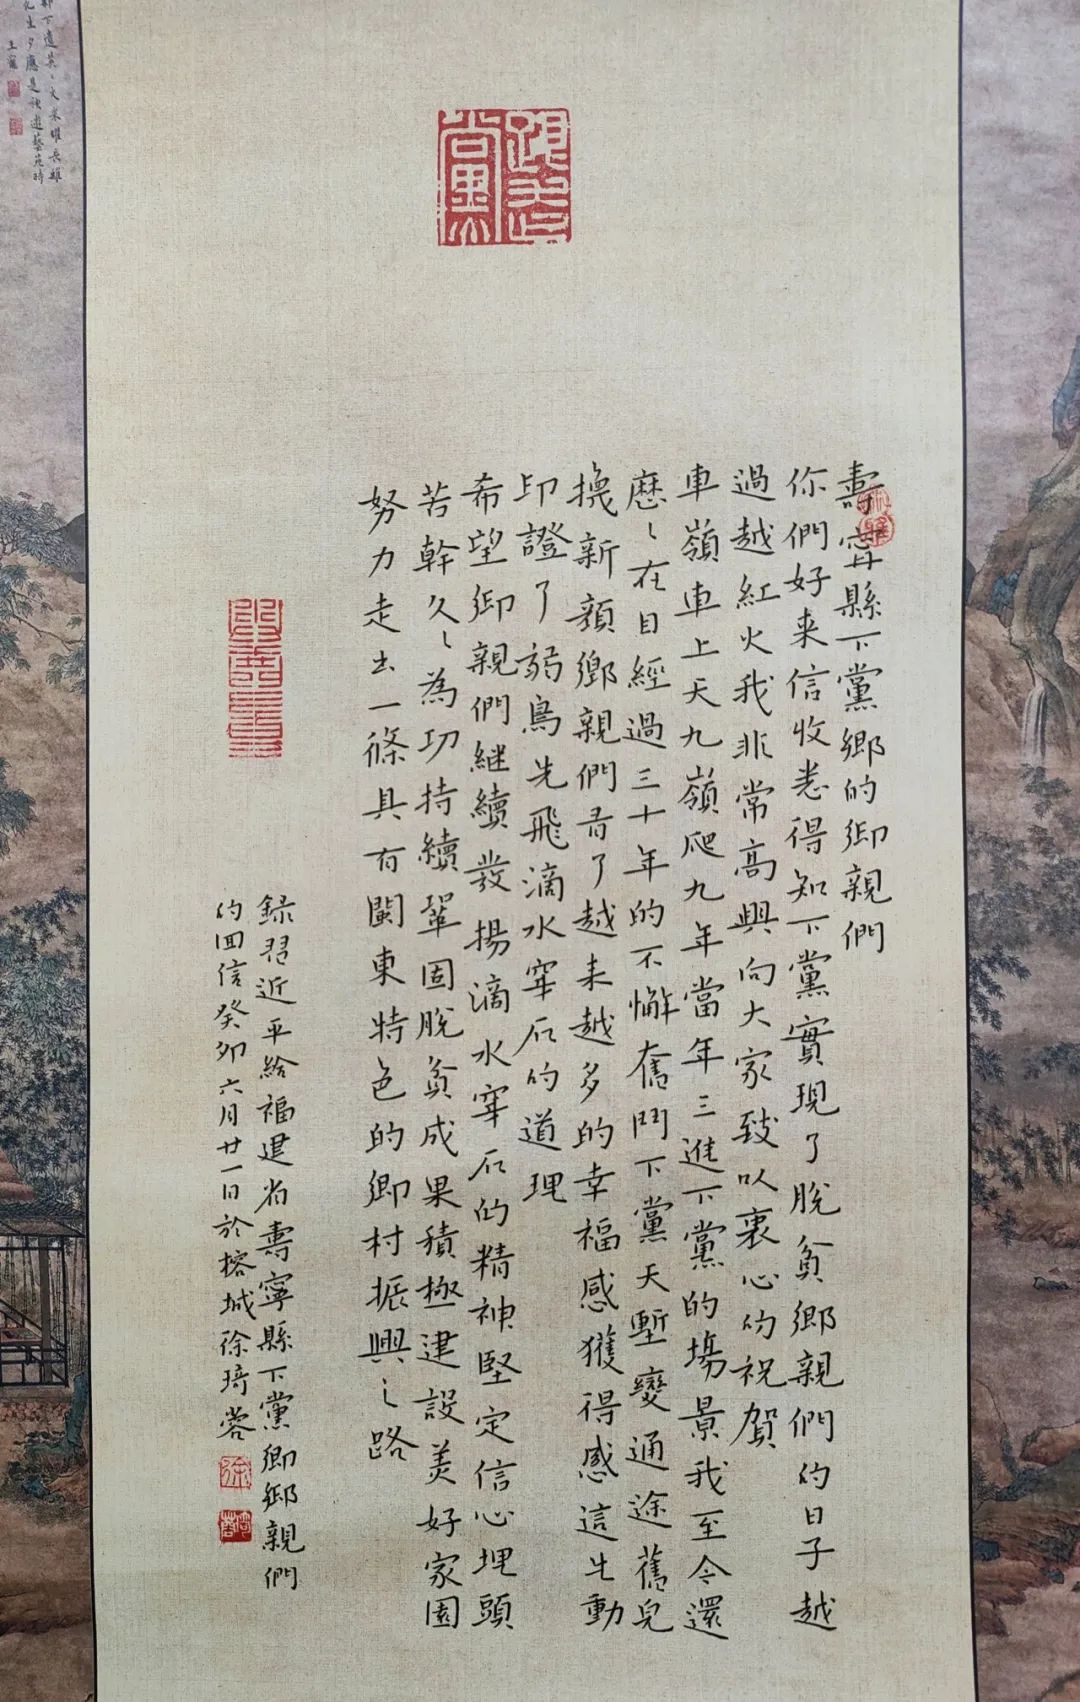 壽寧縣下黨鄉的鄉親們
你們好来信收悉得知下黨實現了脫貧鄉親們的日子越
過越紅火我非常高興向大家致以衷心的祝賀
車嶺車上天九嶺爬九年當年三進下黨的場景我至今還
歷〻在目經過三十年的不懈奮鬥下黨天塹變通途舊皃
換新顏鄉親們有了越来越多的幸福感獲得感這生動
印證了弱鳥先飛滴水穿石的道理
希望鄉親們継續發揚滴水穿石的精神堅定信心埋頭
苦幹久〻為功持續鞏固脫貧成果積極建設美好家園
努力走出一條具有閩東特色的鄉村振興之路
録習近平給福建省壽寧縣下黨鄉鄉親們
的回信癸卯六月廿一日於榕城徐琦蓉
黨